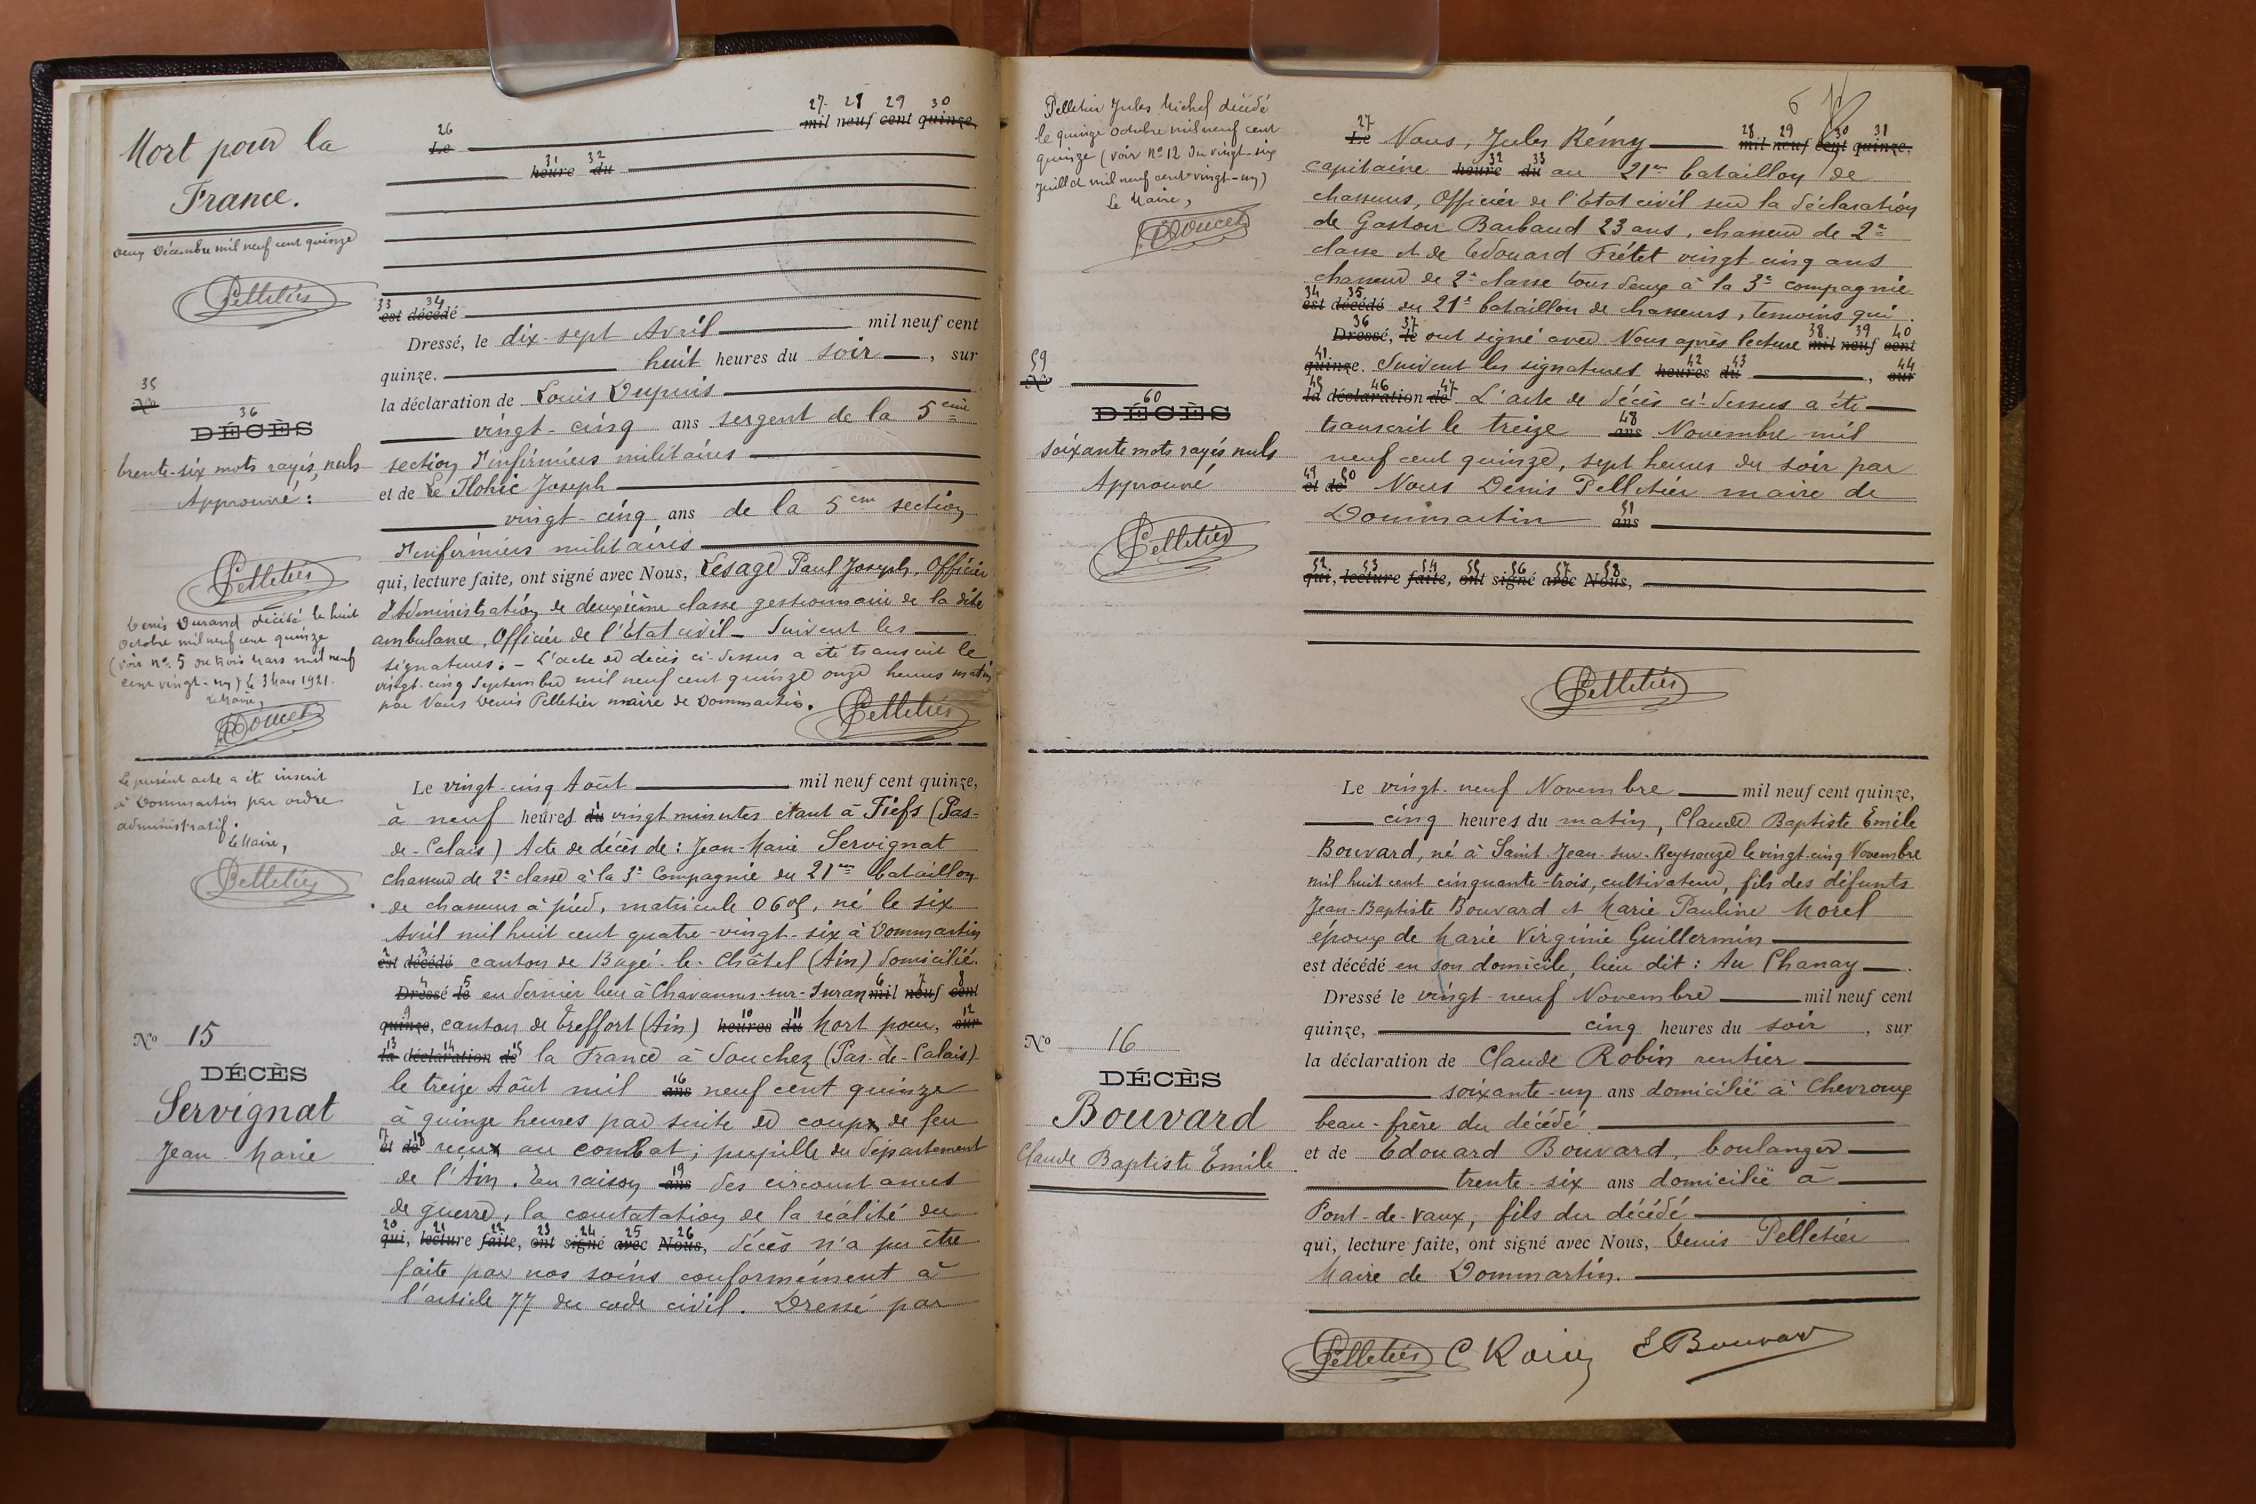 Mort pour la
France.
Deux Décembre mil neuf cent quinze
Pelletier
35
N°
36
DÉCÈS
trente-six mots rayés nuls
Approuvé :
Pelletier
Denis Durand décédé le huit
Octobre mil neuf cent quinze
(voir n°. 5 du trois Mars mil neuf
cent vingt-un) le 3 Mars 1921.
Le Maire,
Doucet
26 27 28 29 30
Le mil neuf cent quinze,
31 32
heure du
33 34
est décédé
Dressé, le dix-sept Avril mil neuf cent
quinze. huit heures du soir, sur
la déclaration de Louis Dupuis
vingt-cinq ans sergent de la 5eme
section d'infirmiers militaires
et de Le Flohic Joseph
vingt-cinq ans de la 5eme section
d'infirmiers militaires
qui, lecture faite, ont signé avec Nous, Lesage Paul Joseph, Officier
d'Administration de deuxième classe gestionnaire de la dite
ambulance, Officier de l'Etat civil - Suivent les
signatures. - L'acte de décès ci-dessus a été transcrit le
vingt-cinq Septembre mil neuf cent quinze onze heures matin
par Nous Denis Pelletier maire de Dommartin.
Pelletier
Le présent acte a été inscrit
à Dommartin par ordre
administratif.
Le Maire,
Pelletier
N° 15
DÉCÈS
Servignat
Jean-Marie
Le vingt-cinq Août mil neuf cent quinze,
à neuf heures du vingt minutes étant à Fiefs (Pas-
de-Calais) Acte de décès de : Jean-Marie Servignat
chasseur de 2e classe à la 3e Compagnie du 21me bataillon
de chasseurs à pied, matricule 0605, né le six
Avril mil huit cent quatre-vingt-six à Dommartin
2 3
est décédé canton de Bagé-le-Châtel (Ain) domicilié
4 5 6 7 8
Dressé le en dernier lieu à Chavannes-sur-Suran mil neuf cent
9 10 11 12
quinze, canton de Treffort (Ain) heures du Mort pour, sur
13 14 15
la déclaration de la France à Souchez (Pas-de-Calais)
16
le treize Août mil ans neuf cent quinze
à quinze heures par suite de coupx de feu
17 18
et de reçux au combat ; pupille du département
19
de l'Ain. En raison ans des circonstances
de guerre, la constatation de la réalité du
20 21 22 23 24 25 26
qui, lecture faite, ont signé avec Nous, décès n'a pu être
faite par nos soins conformément à
l'article 77 du code civil. Dressé par
Pelletier Jules Michel décédé
le quinze Octobre mil neuf cent
quinze (voir n° 12 du vingt-six
Juillet mil neuf cent vingt-un)
Le Maire,
Doucet
59
N°
60
DÉCÈS
soixante mots rayés nuls
Approuvé
Pelletier
6
27 28 29 30 31
Le Nous, Jules Rémy mil neuf cent quinze.
32 33
capitaine heure du au 21me bataillon de
chasseurs, Officier de l'Etat civil sur la déclaration
de Gaston Barbaud 23 ans, chasseur de 2e
classe et de Edouard Frétet vingt-cinq ans
chasseur de 2e classe tous deux à la 3e compagnie
34 35
est décédé du 21e bataillon de chasseurs, témoins qui
36 37 38 39 40
Dressé, le ont signé avec Nous après lecture mil neuf cent
41 42 43 44
quinze. Suivent les signatures heures du , sur
45 46 47
la déclaration de L'acte de décès ci-dessus a été
48
transcrit le treize ans Novembre mil
neuf cent quinze, sept heures du soir par
49 50
et de Nous Denis Pelletier maire de
51
Dommartin ans
52 53 54 55 56 57 58
qui, lecture faite, ont signé avec Nous,
Pelletier
N° 16
DÉCÈS
Bouvard
Claude Baptiste Emile
Le vingt-neuf Novembre mil neuf cent quinze,
cinq heures du matin, Claude Baptiste Emile
Bouvard, né à Saint-Jean-sur-Reyssouze le vingt-cinq Novembre
mil huit cent cinquante-trois, cultivateur, fils des défunts
Jean-Baptiste Bouvard et Marie Pauline Morel
époux de Marie Virginie Guillermin
est décédé en son domicile, lieu dit : Au Chanay
Dressé le vingt-neuf Novembre mil neuf cent
quinze, cinq heures du soir, sur
la déclaration de Claude Robin rentier
soixante-un ans domicilié à Chevroux
beau-frère du décédé
et de Edouard Bouvard, boulanger
trente-six ans domicilié à
Pont-de-Vaux, fils du décédé
qui, lecture faite, ont signé avec Nous, Denis Pelletier
Maire de Dommartin.
Pelletier C Robin E Bouvard